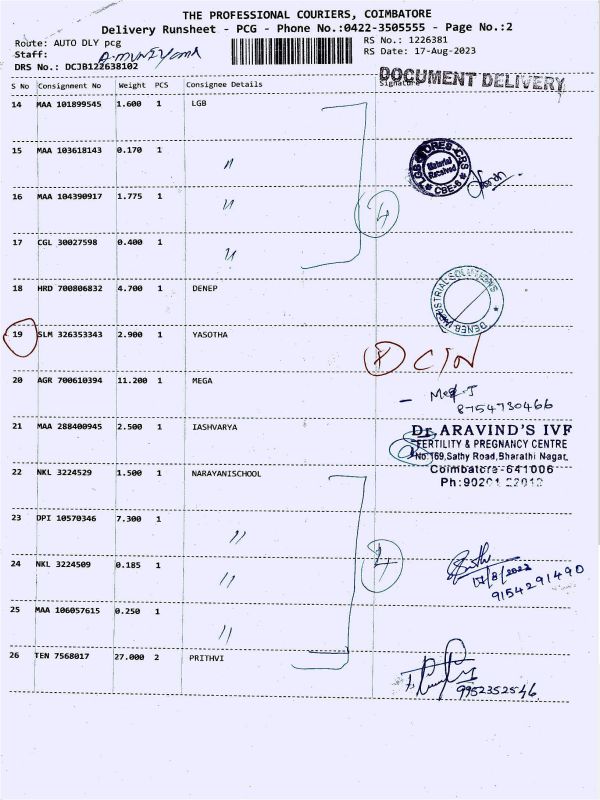 THE PROFESSIONAL COURIERS, COIMBATORE
Delivery Runsheet - PCG - Phone No.:0422-3505555 - Page No.:2
Route: AUTO DLY pcg
RS No.: 1226381
Staff:
RS Date: 17-Aug-2023
DRS No.: DCJB122638102
DOCUMENT DELIVERY
S No Consignment No Weight PCS Consignee Details Signature
14 MAA 101899545 1.600 1 LGB
15 MAA 103618143 0.170 1 "
LGB STORES-CBS
Material Received
CBE-6
16 MAA 104390917 1.775 1 "
4
17 CGL 30027598 0.400 1 "
18 HRD 700806832 4.700 1 DENEP
DENEB INDUSTRIAL SOLUTIONS
19 SLM 326353343 2.900 1 YASOTHA
20 AGR 700610394 11.200 1 MEGA
8754730466
21 MAA 288400945 2.500 1 IASHVARYA
Dr. ARAVIND'S IVF
FERTILITY & PREGNANCY CENTRE
No:169,Sathy Road,Bharathi Nagar,
Coimbatore-641006
22 NKL 3224529 1.500 1 NARAYANISCHOOL
Ph:90201
23 DPI 10570346 7.300 1 "
24 NKL 3224509 0.185 1 "
4
17/8/2023
9154291490
25 MAA 106057615 0.250 1 "
26 TEN 7568017 27.000 2 PRITHVI
9952352546